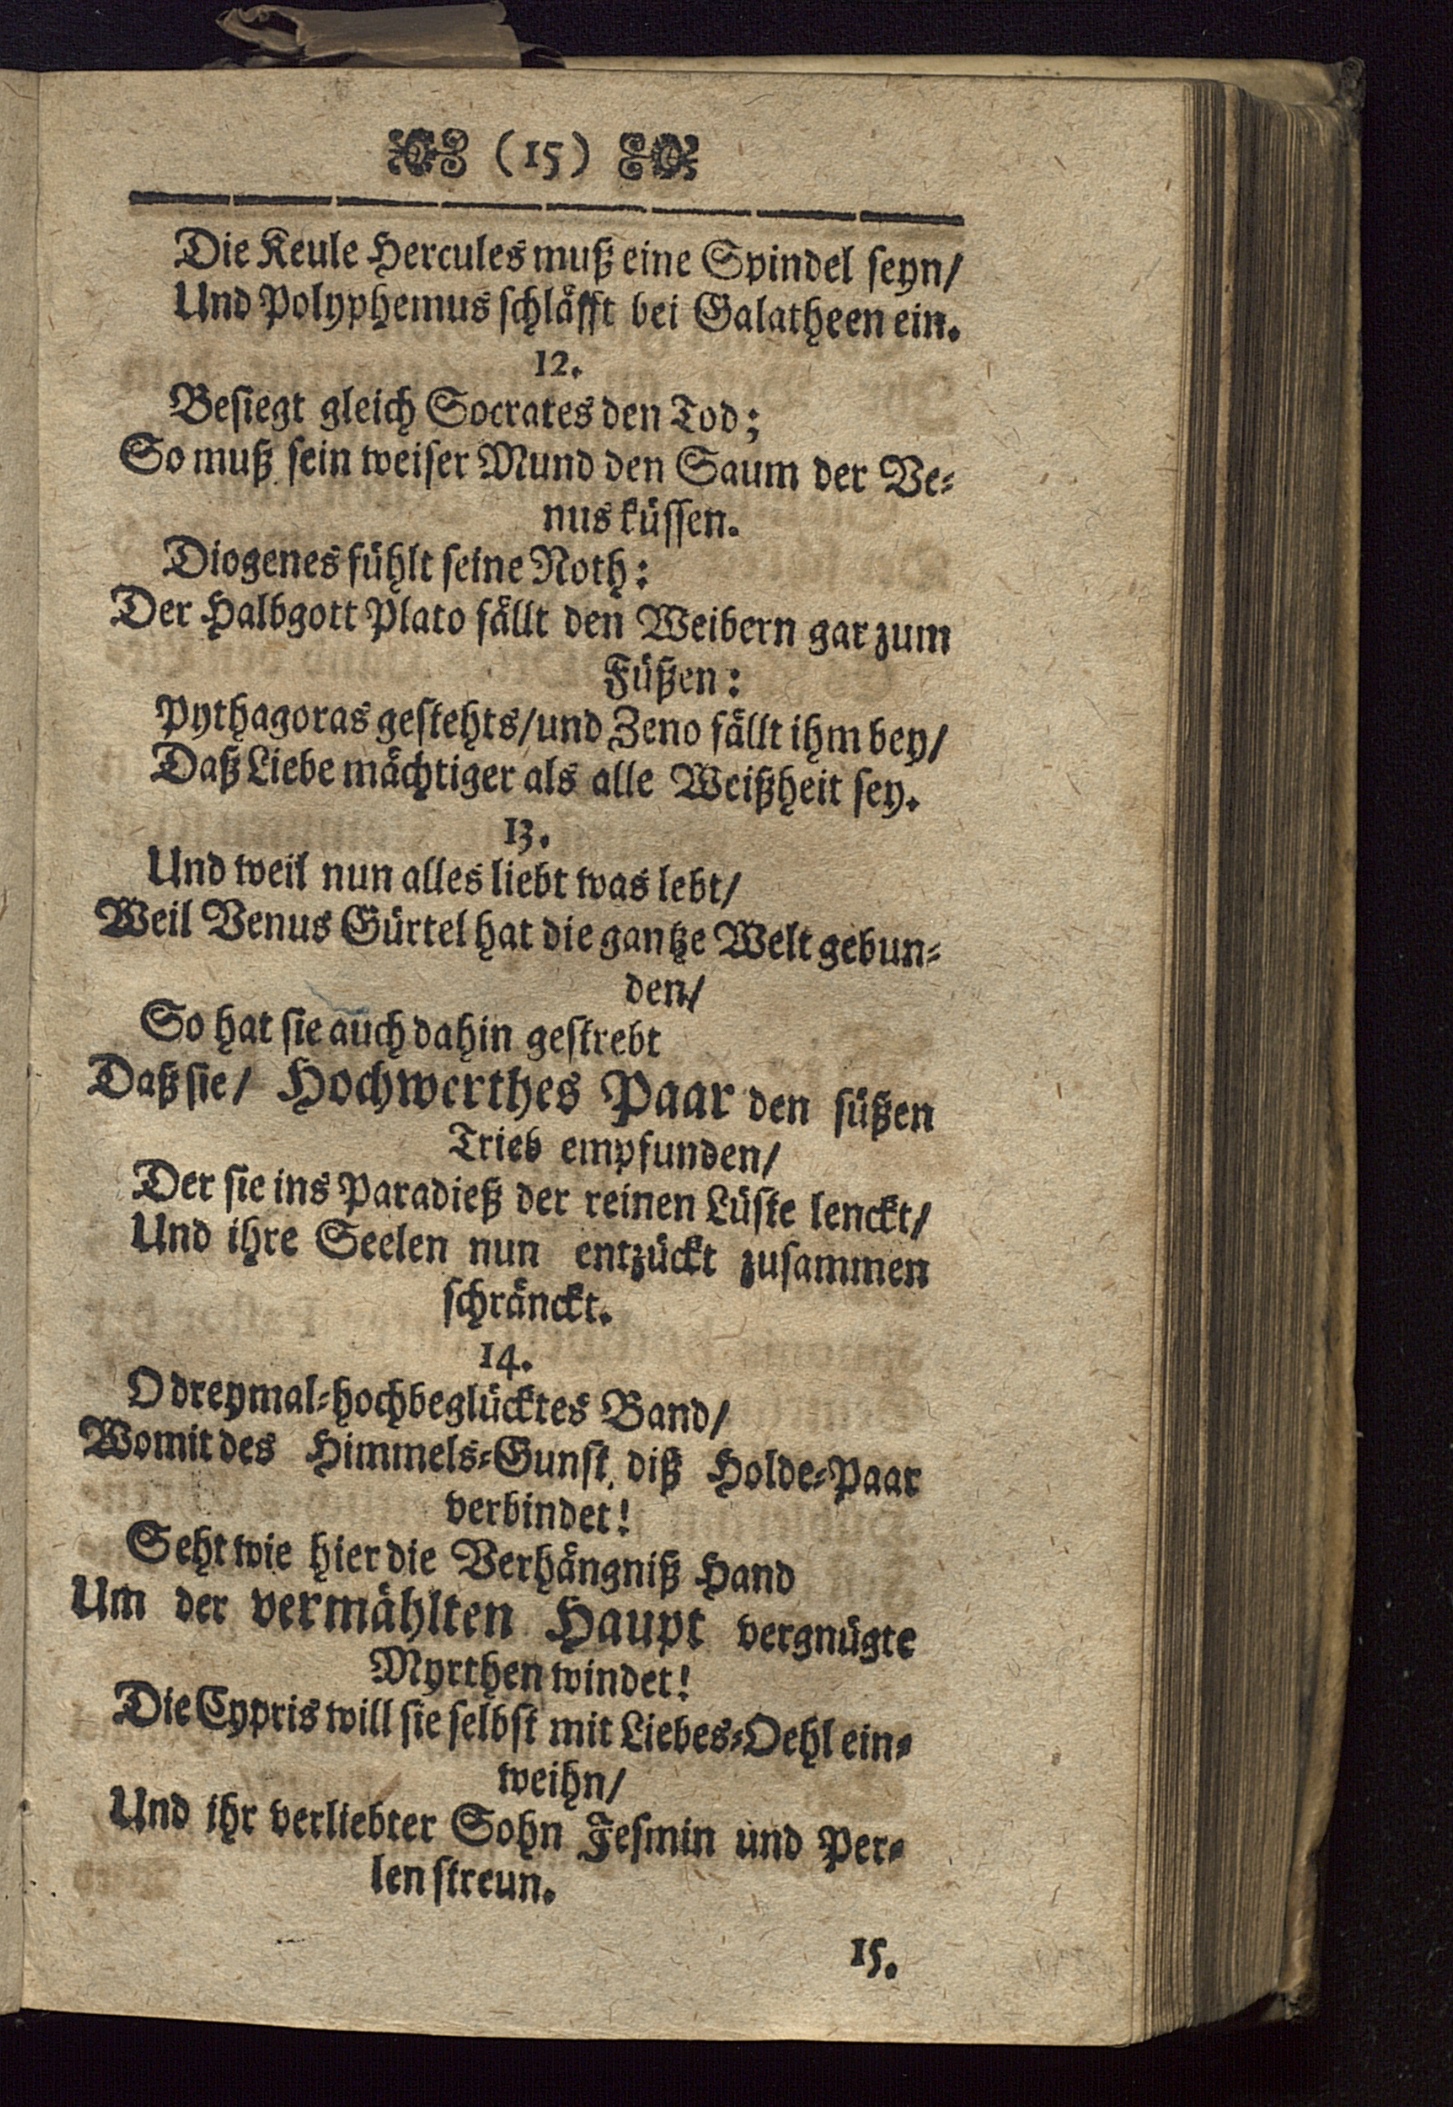 (15)
Die Keule Hercules muß eine Spindel seyn/
Und Polyphemus schläfft bei Galatheen ein.
12.
Besiegt gleich Socrates den Tod;
So muß sein weiser Mund den Saum der Ve-
nus küssen.
Diogenes fühlt seine Noth:
Der Halbgott Plato fällt den Weibern gar zum
Füßen:
Pythagoras gestehts/und Zeno fällt ihm bey/
Daß Liebe mächtiger als alle Weißheit sey.
13.
Und weil nun alles liebt was lebt/
Weil Venus Gürtel hat die gantze Welt gebun-
den/
So hat sie auch dahin gestrebt
Daß sie/ Hochwerthes Paar den süßen
Trieb empfunden/
Der sie ins Paradieß der reinen Lüste lenckt/
Und ihre Seelen nun entzückt zusammen
schränckt.
14.
O dreymal-hochbeglücktes Band/
Womit des Himmels-Gunst diß Holde-Paar
verbindet!
Seht wie hier die Verhängniß Hand
Um der vermählten Haupt vergnügte
Myrthen windet!
Die Cypris will sie selbst mit Liebes-Oehl ein-
weihn/
Und ihr verliebter Sohn Jesmin und Per-
len streun.
15.